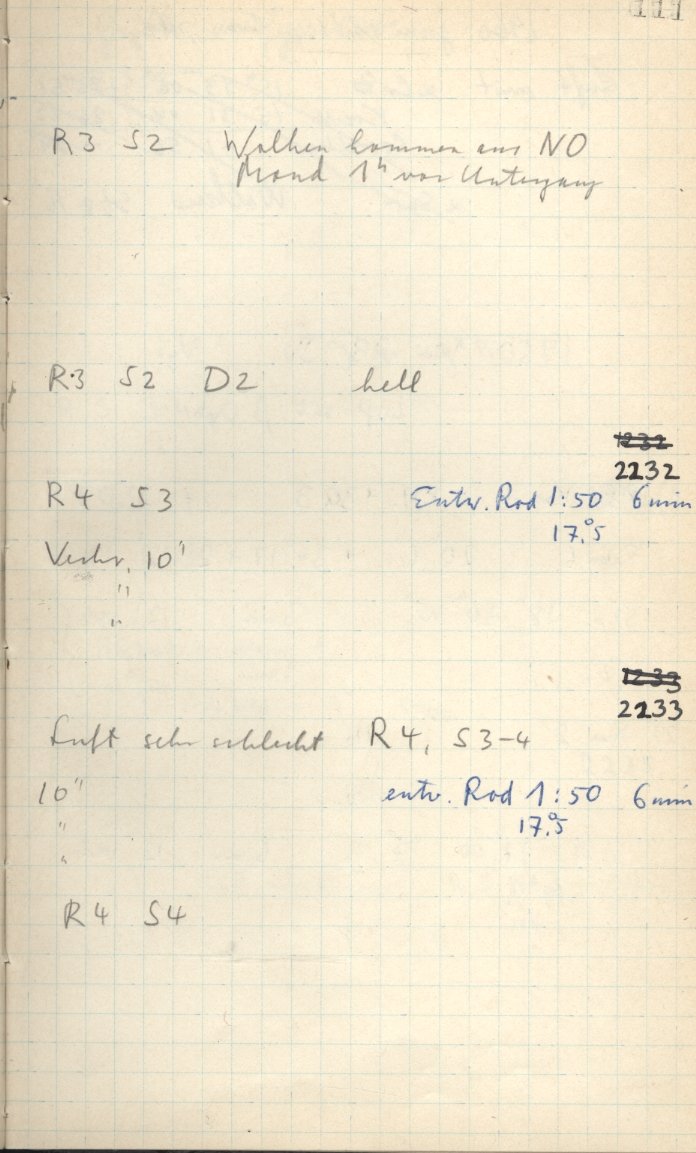 111
R3 S2 Wolken kommen aus NO
Mond 1h vor Untergang
R3 S2 D2 hell
1232
2232
R4 S3 Entw. Rod 1:50 6 min
17.°5
Verhr. 10"
"
"
1233
2233
Luft sehr schlecht R4, S3-4
10" entw. Rod 1:50 6 min
" 17.°5
"
R4 S4